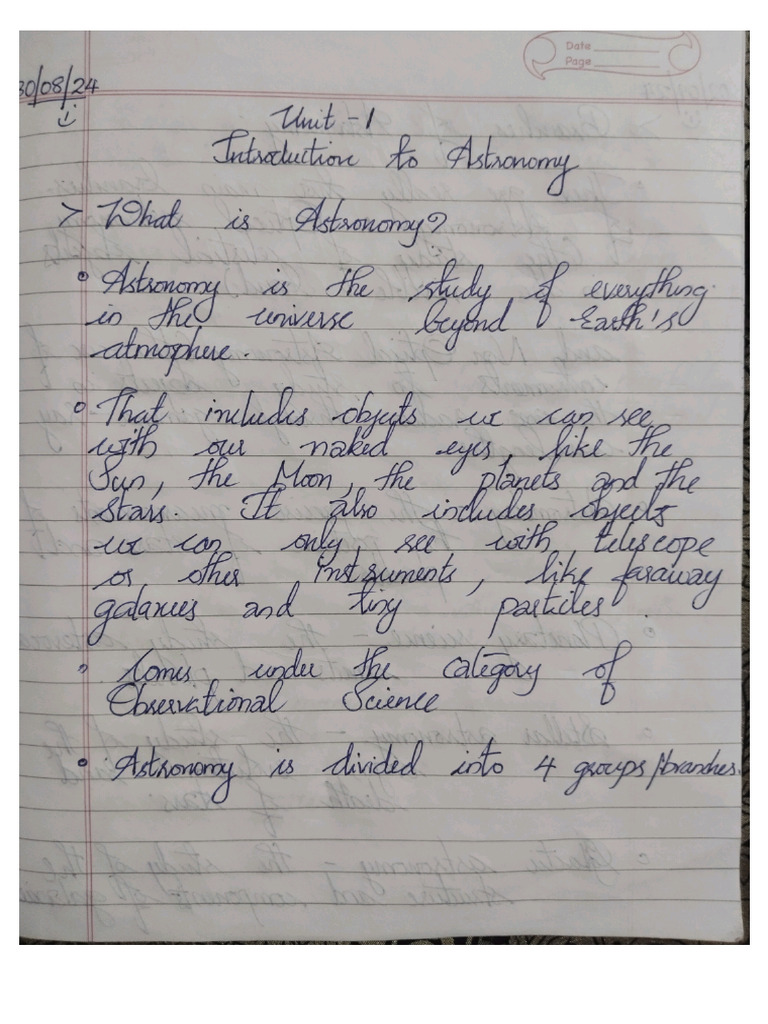 Date
Page
30/08/24
Unit - 1
Introduction to Astronomy
> What is Astronomy?
• Astronomy is the study of everything
in the universe beyond Earth's
atmophere.
• That includes objects we can see
with our naked eyes, like the
Sun, the Moon, the planets and the
stars. It also includes objects
we can only see with telescope
or other instruments, like faraway
galaxies and tiny particles.
• Comes under the category of
Observational Science
• Astronomy is divided into 4 groups/branches.